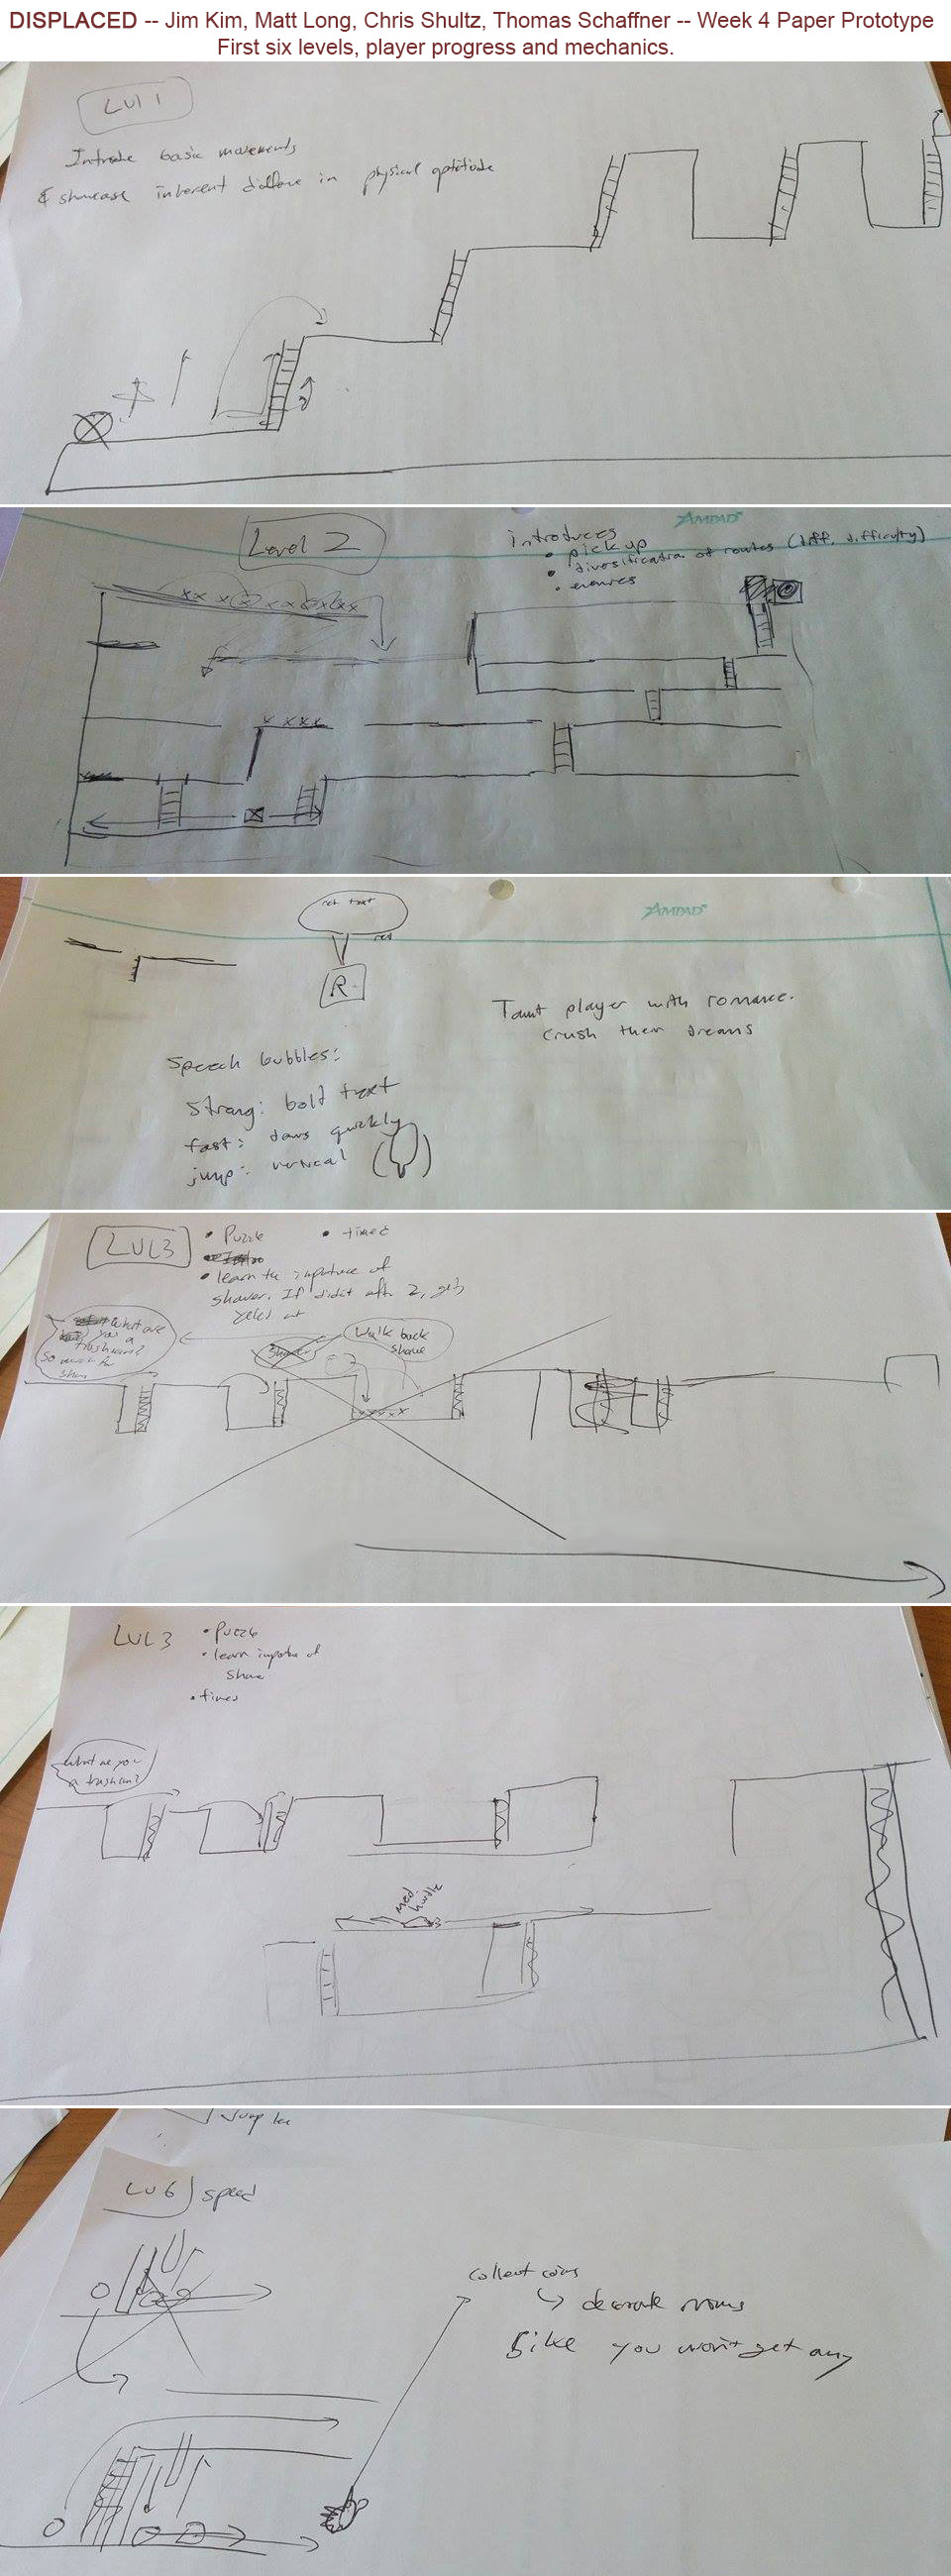 DISPLACED -- Jim Kim, Matt Long, Chris Shultz, Thomas Schaffner -- Week 4 Paper Prototype
First six levels, player progress and mechanics.
LVl 1
basic movements
& showcase inherent in physical
AMPAD
Level 2
introduces
• pick up
• diversification of routes (diff. difficulty)
•
xx x x x x x
x xxx
AMPAD
text
R
Taunt player with romance.
crush their dreams
Speech bubbles:
Strong: bold text
fast: quickly
jump: vertical
LVL3
• Puzzle
• timed
• learn the of
shower. If didst after 2, gets
at
What are
you a
trashcan?
So much for
Walk back
LVL 3
• Puzzle
• learn of
What are you
a trashcan?
Med.
hurdle
Jump
LV6 speed
collect coins
↳ decorate rooms
like you won't get any